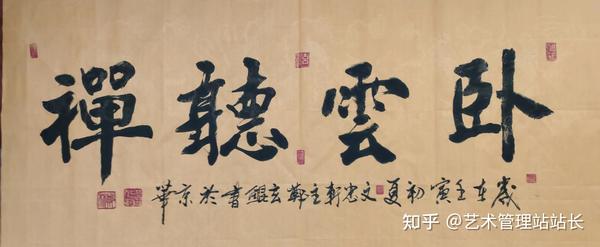 卧雲聽禪
歲在壬寅初夏文忠軒主鄭玄鯤書於京華
知乎 @艺术管理站站长